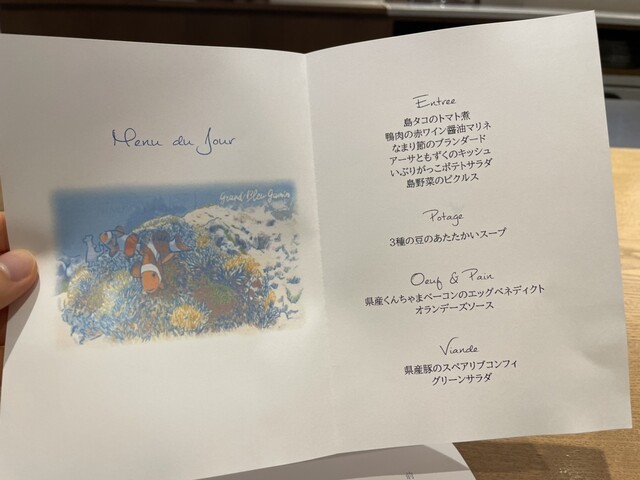 Menu du Jour
Grand Bleu Gamin
Entree
島タコのトマト煮
鴨肉の赤ワイン醤油マリネ
なまり節のブランダード
アーサともずくのキッシュ
いぶりがっこポテトサラダ
島野菜のピクルス
Potage
3種の豆のあたたかいスープ
Oeuf & Pain
県産くんちゃまベーコンのエッグベネディクト
オランデーズソース
Viande
県産豚のスペアリブコンフィ
グリーンサラダ